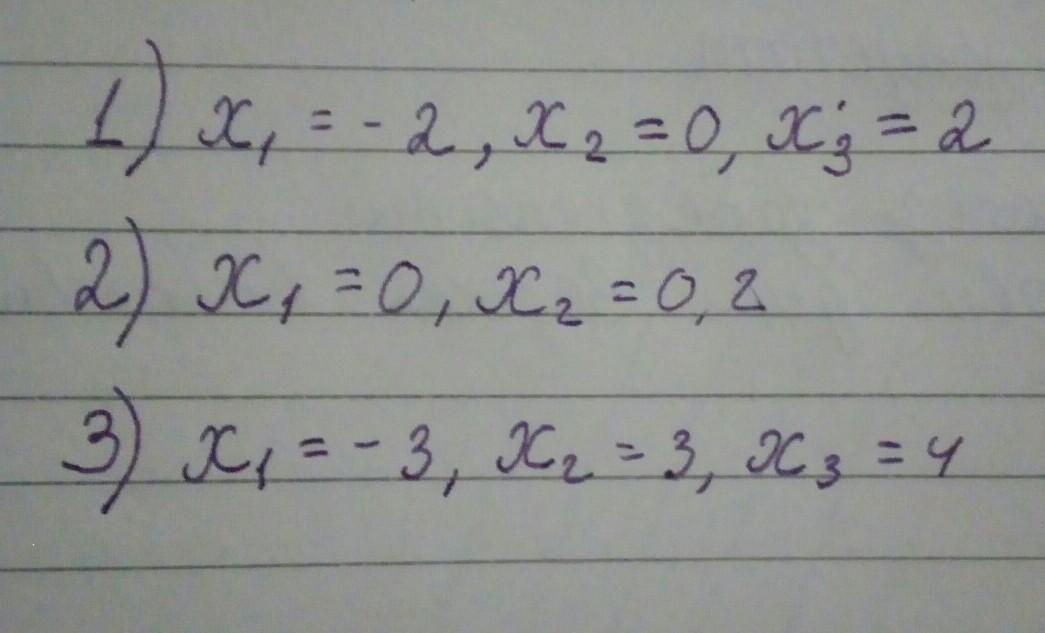 1) x₁ = - 2, x₂ = 0, x₃ = 2
2) x₁ = 0, x₂ = 0, 2
3) x₁ = - 3, x₂ = 3, x₃ = 4